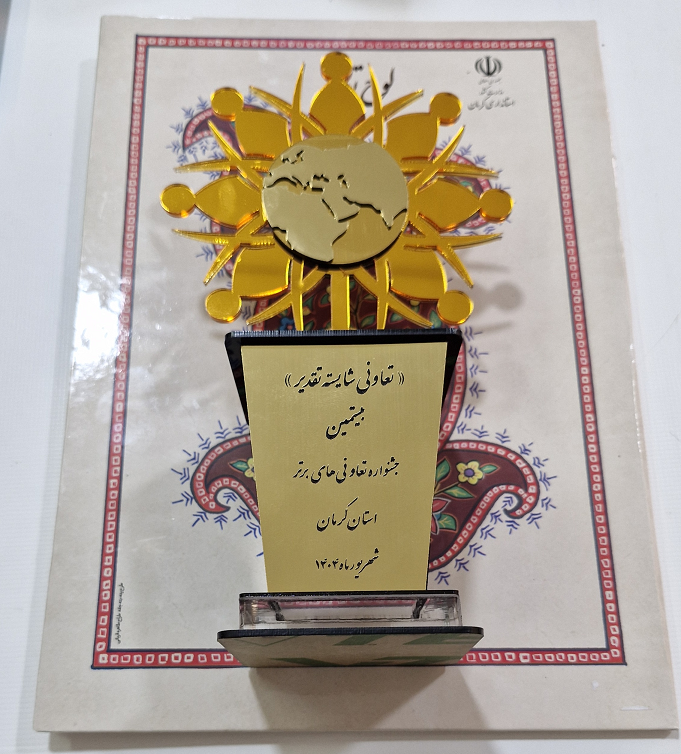 لوح
استانداری کرمان
« تعاونی شایسته تقدیر »
بیستمین
جشنواره تعاونی های برتر
استان کرمان
شهریور ماه ۱۴۰۴